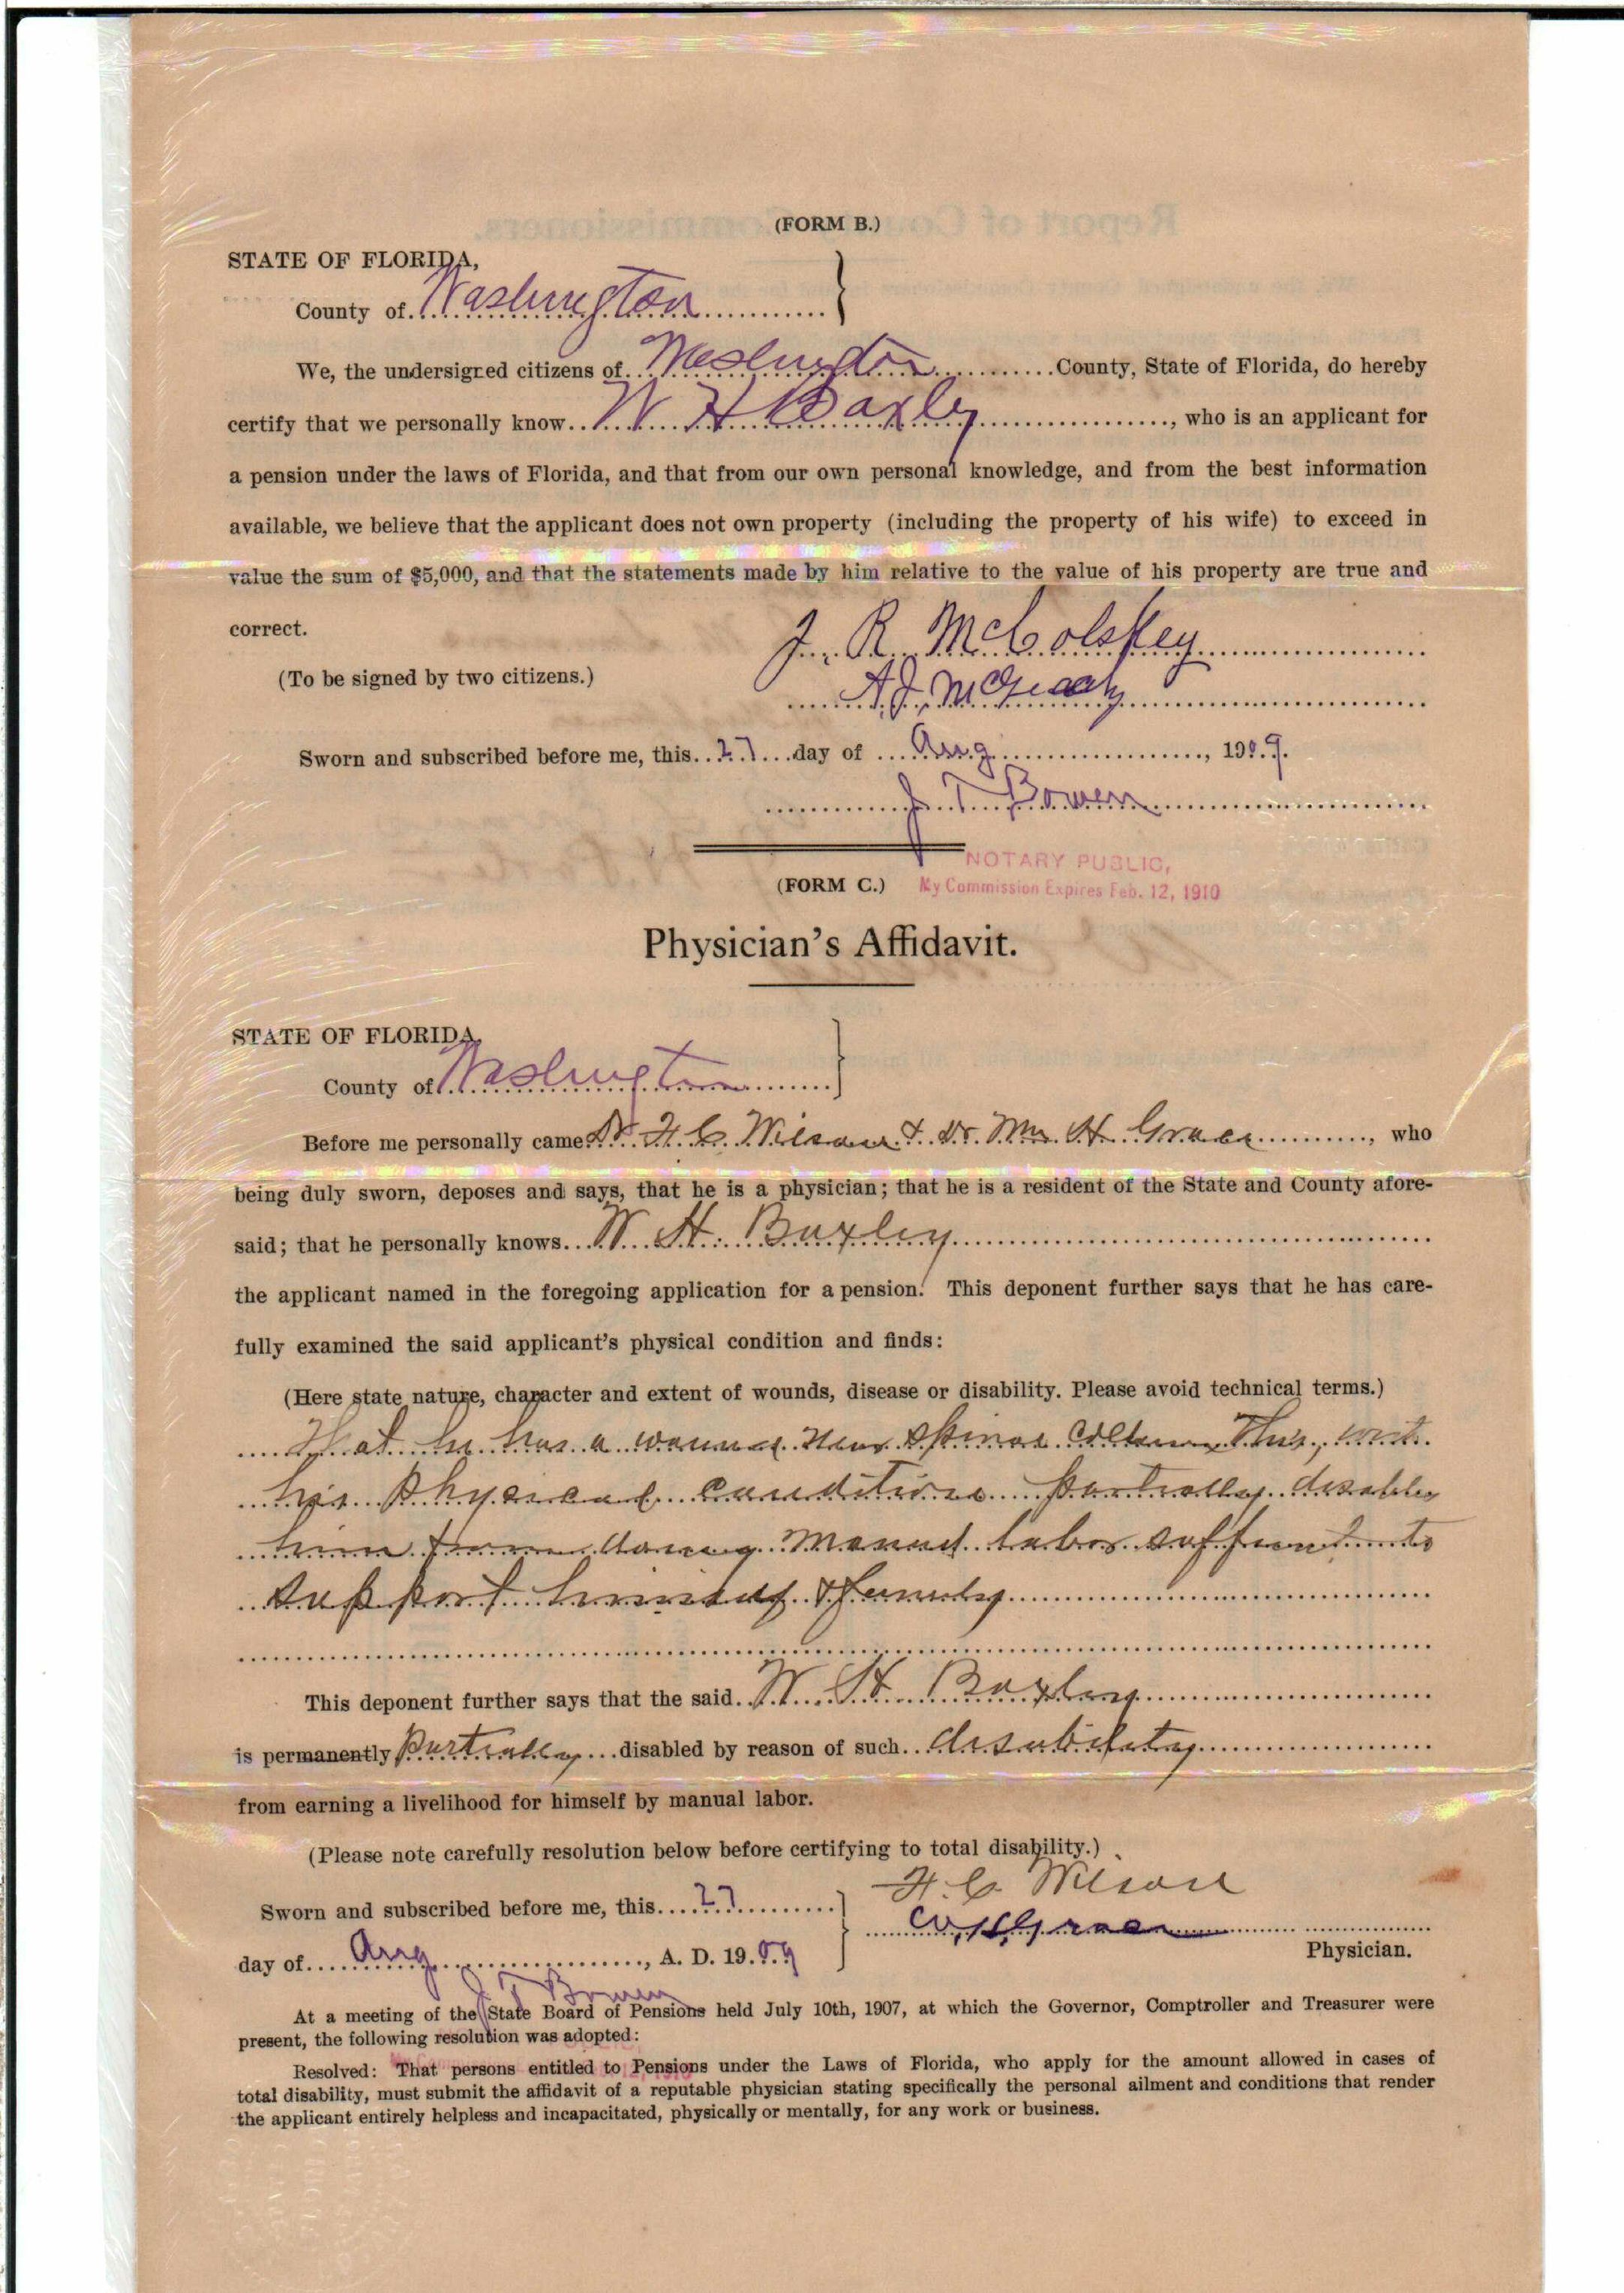 (FORM B.)
STATE OF FLORIDA,
County of Washington
We, the undersigned citizens of Washington County, State of Florida, do hereby
certify that we personally know W H Baxley, who is an applicant for
a pension under the laws of Florida, and that from our own personal knowledge, and from the best information
available, we believe that the applicant does not own property (including the property of his wife) to exceed in
value the sum of $5,000, and that the statements made by him relative to the value of his property are true and
correct.
J. R. McColskey
(To be signed by two citizens.)
A. J. McGeachy
Sworn and subscribed before me, this 27 day of Aug, 1909.
J T Bowen
NOTARY PUBLIC,
(FORM C.) My Commission Expires Feb. 12, 1910
Physician's Affidavit.
STATE OF FLORIDA,
County of Washington
Before me personally came Dr H. C. Wilson & Dr. Wm H. Grace, who
being duly sworn, deposes and says, that he is a physician; that he is a resident of the State and County afore-
said; that he personally knows W H. Baxley
the applicant named in the foregoing application for a pension. This deponent further says that he has care-
fully examined the said applicant's physical condition and finds:
(Here state nature, character and extent of wounds, disease or disability. Please avoid technical terms.)
That he has a wound near spinal column This, with
his physical condition partially disables
him from doing manual labor sufficient to
support himself & family
This deponent further says that the said W. H. Baxley
is permanently partially disabled by reason of such disability
from earning a livelihood for himself by manual labor.
(Please note carefully resolution below before certifying to total disability.)
H. C. Wilson
Sworn and subscribed before me, this 27
W. H. Grace
day of Aug, A. D. 1909
Physician.
J T Bowen
At a meeting of the State Board of Pensions held July 10th, 1907, at which the Governor, Comptroller and Treasurer were
present, the following resolution was adopted:
Resolved: That persons entitled to Pensions under the Laws of Florida, who apply for the amount allowed in cases of
total disability, must submit the affidavit of a reputable physician stating specifically the personal ailment and conditions that render
the applicant entirely helpless and incapacitated, physically or mentally, for any work or business.